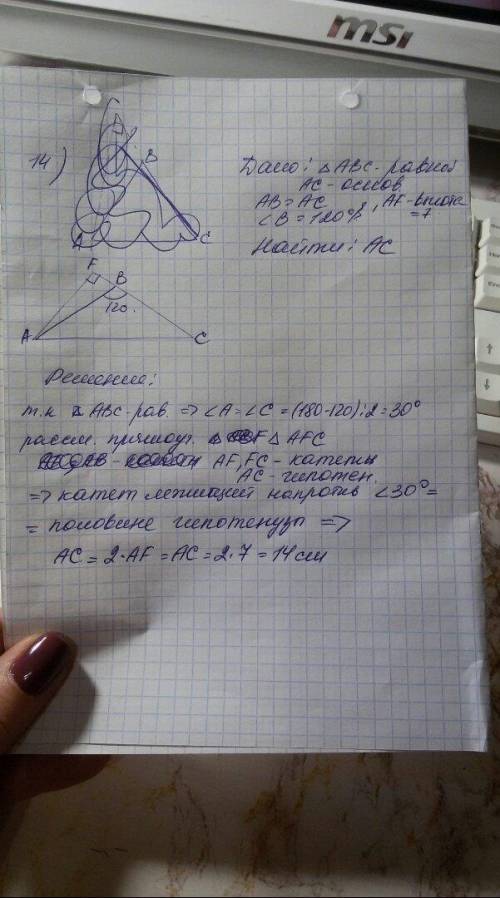 msi
14)
B
A
C
Дано: △ABC - равноб
AC - основ.
AB = AC, AF - высота
∠B = 120°
= 7
Найти: AC
F
B
120°
A
C
Решение:
т.к △ABC - рав. => ∠A = ∠C = (180-120):2 = 30°
рассм. прямоуг. △ AFC
AF, FC - катеты
AC - гипотен.
=> катет лежащий напротив ∠30° =
= половине гипотенузы =>
AC = 2·AF = AC = 2·7 = 14 см